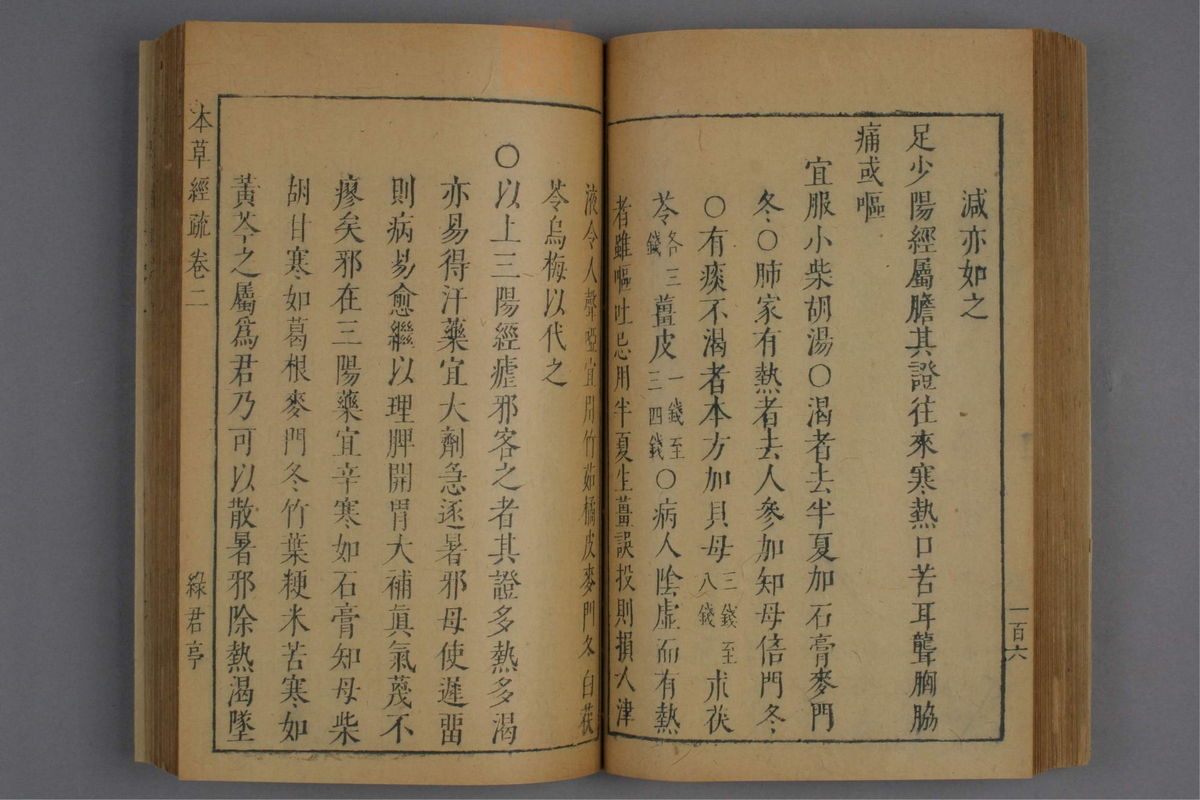 減亦如之
足少陽經屬膽其證往來寒熱口苦耳聾胸脇
痛或嘔
宜服小柴胡湯○渴者去半夏加石膏麥門
冬○肺家有熱者去人參加知母倍門冬
○有痰不渴者本方加貝母三錢至八錢朮茯
苓各三錢薑皮一錢至三四錢○病人陰虛而有熱
者雖嘔吐忌用半夏生薑誤投則損人津
一百六
液令人聲啞宜用竹茹橘皮麥門冬白茯
苓烏梅以代之
○以上三陽經瘧邪客之者其證多熱多渴
亦易得汗藥宜大劑急逐暑邪毋使遲畱
則病易愈繼以理脾開胃大補眞氣蔑不
瘳矣邪在三陽藥宜辛寒如石膏知母柴
胡甘寒如葛根麥門冬竹葉粳米苦寒如
黃芩之屬爲君乃可以散暑邪除熱渴墜
本草經疏卷二
綠君亭